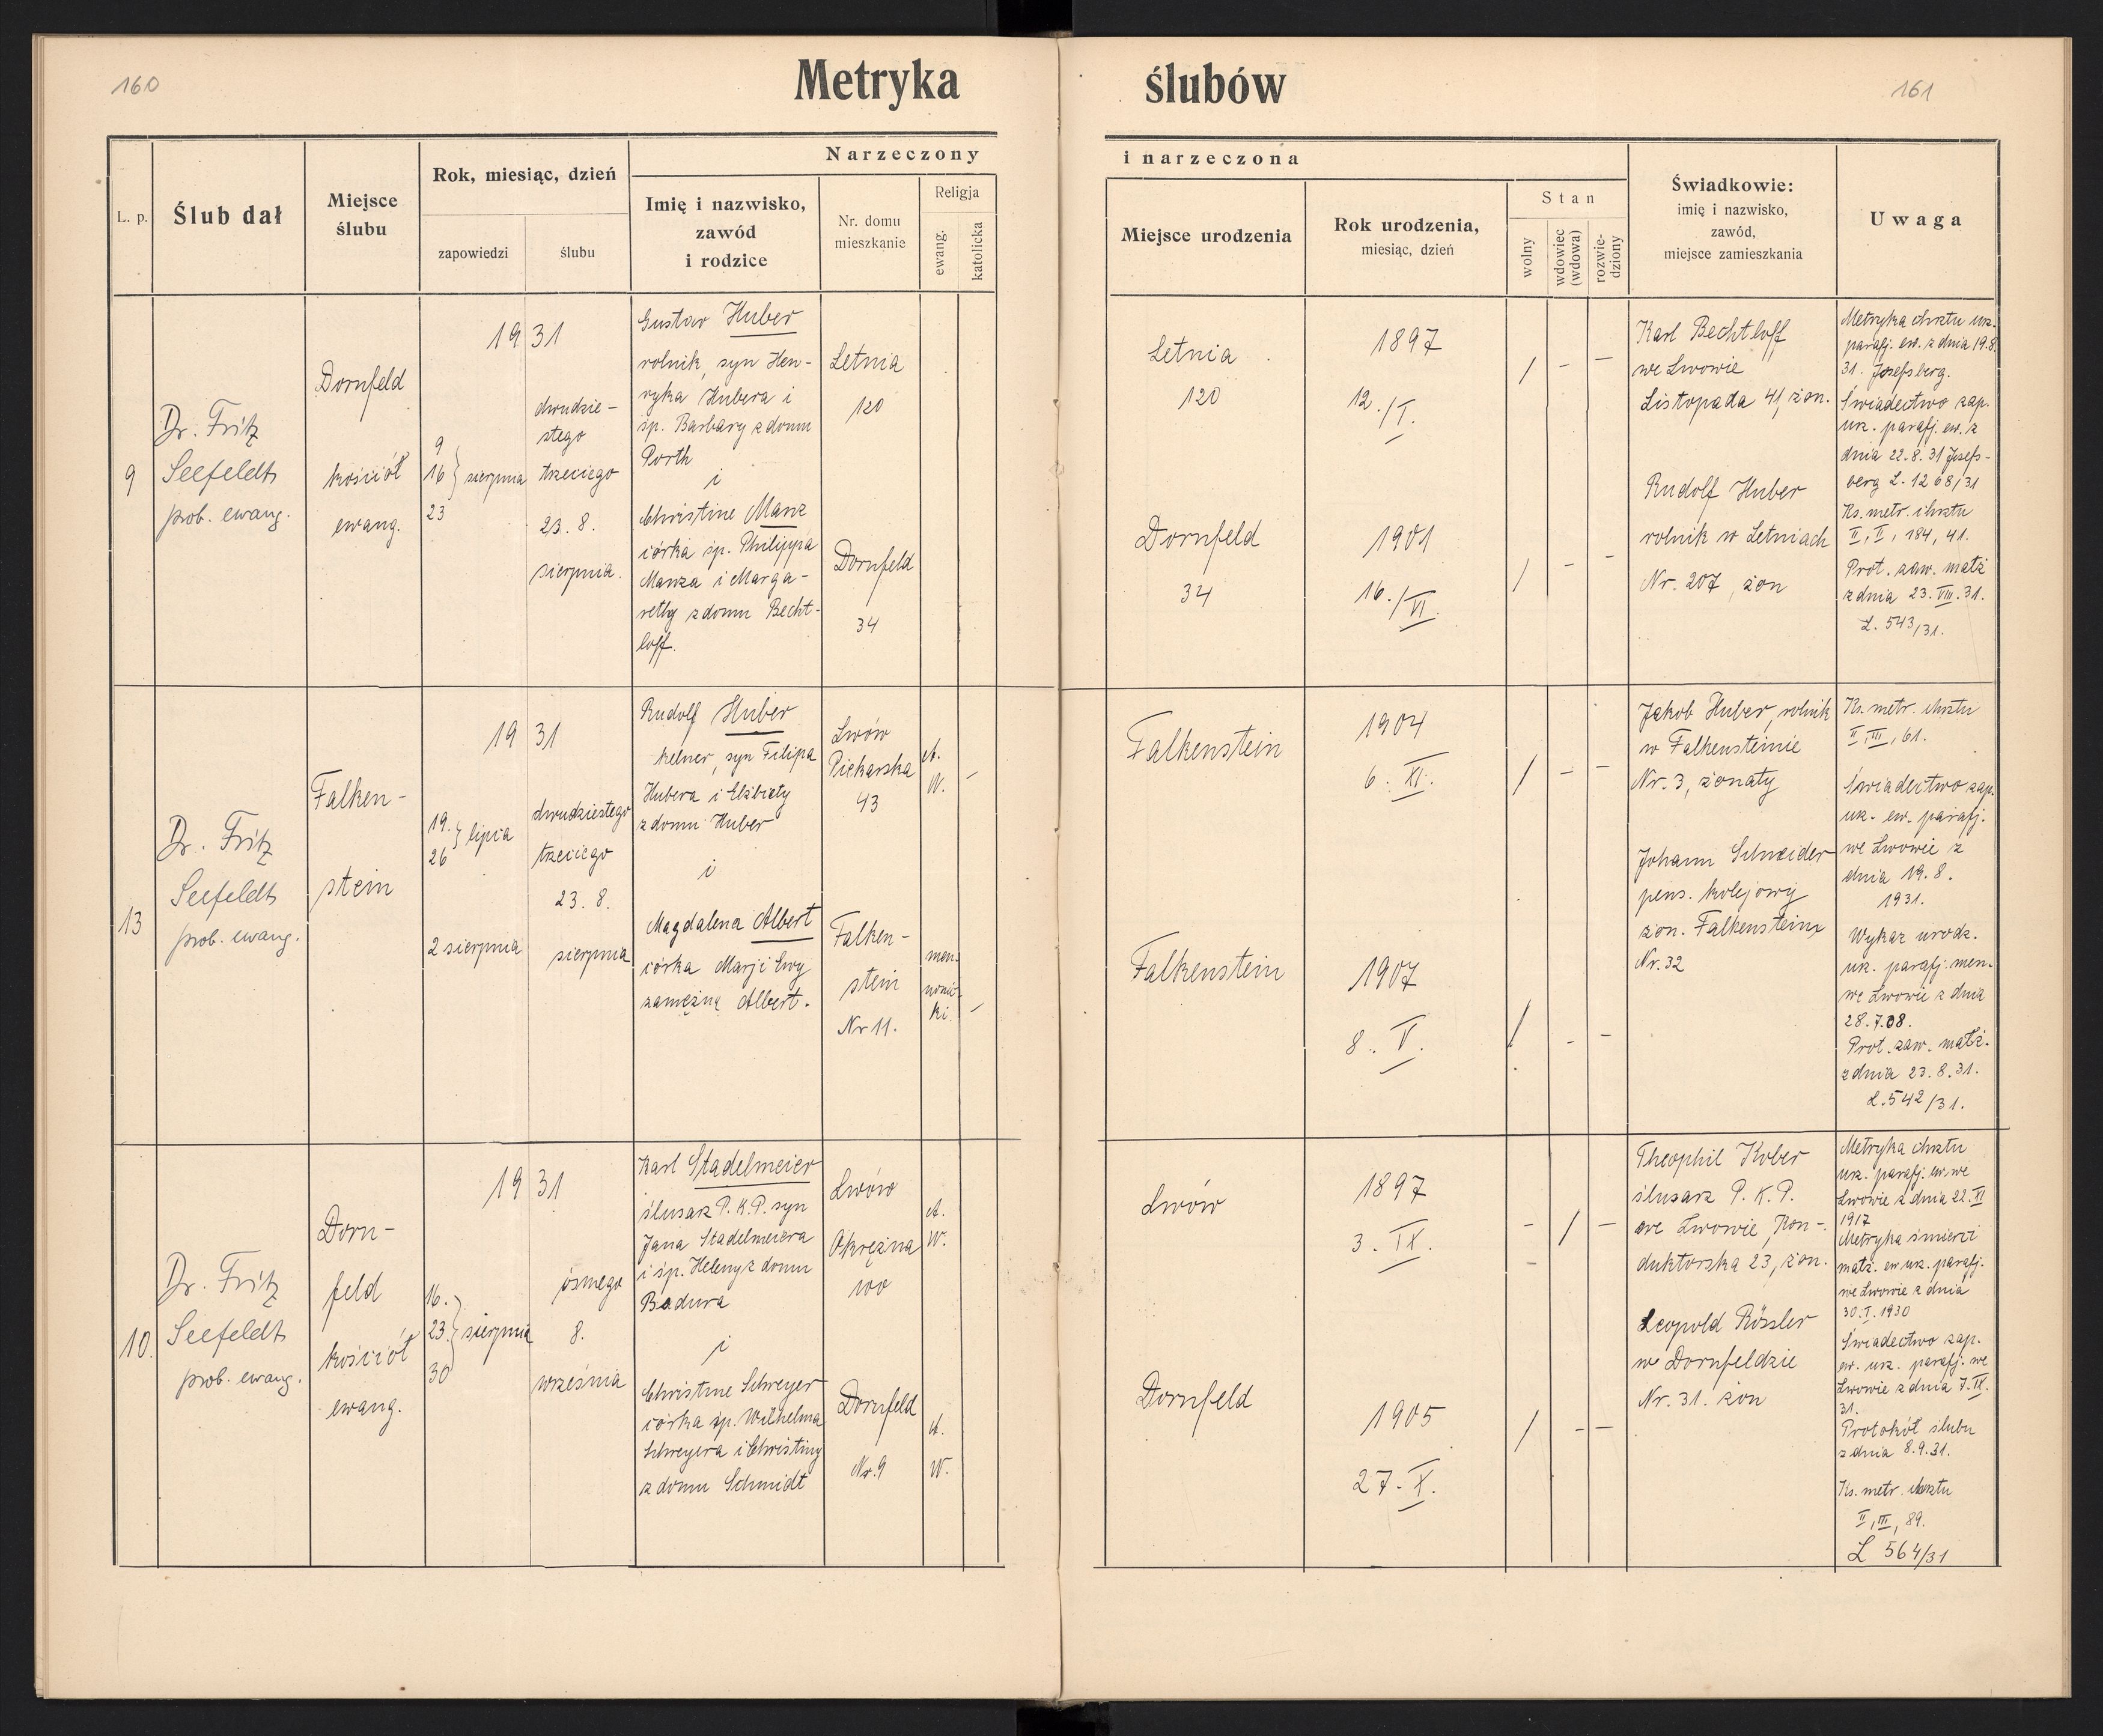 160
Metryka ślubów
161
L. p.
Ślub dał
Miejsce
ślubu
Rok, miesiąc, dzień
zapowiedzi
ślubu
Narzeczony
Imię i nazwisko,
zawód
i rodzice
Nr. domu
mieszkanie
Religja
ewang.
katolicka
i narzeczona
Miejsce urodzenia
Rok urodzenia,
miesiąc, dzień
Stan
wolny
wdowiec
(wdowa)
rozwie-
dziony
Świadkowie:
imię i nazwisko,
zawód,
miejsce zamieszkania
Uwaga
9
Dr. Fritz
Seefeldt
prob. ewang.
Dornfeld
kościół
ewang.
1931
9
16 } sierpnia
23
dwudzie-
stego
trzeciego
23. 8.
sierpnia.
Gustav Huber
rolnik, syn Hen-
ryka Hubera i
śp. Barbary z domu
Porth
i
Christine Manz
córka śp. Philippa
Manza i Marga-
rethy z domu Becht-
loff.
Letnia
120
Dornfeld
34
Letnia
120
Dornfeld
34
1897
12./I.
1901
16./VI.
/ - -
/ - -
Karl Bechtloff
we Lwowie
Listopada 41, żon.
Rudolf Huber
rolnik w Letniach
Nr. 207, żon
Metryka chrztu urz.
parafj. ew. z dnia 19.8.
31. Josefsberg.
Świadectwo zap.
urz. parafj. ew. z
dnia 22.8.31 Josefs-
berg L. 1268/31
Ks. metr. chrztu
II, I, 184, 41.
Prot. zaw. małż
z dnia 23. VIII. 31.
L. 543/31.
13
Dr. Fritz
Seefeldt
prob. ewang.
Falken-
stein
1931
19. } lipca
26
2 sierpnia
dwudziestego
trzeciego
23. 8.
sierpnia
Rudolf Huber
kelner, syn Filipa
Hubera i Elżbiety
z domu Huber
i
Magdalena Albert
córka Marji Ewy
zamężną Albert.
Lwów
Piekarska
43
Falken-
stein
Nr 11.
A.
W.
-
men-
nonic-
ki.
-
Falkenstein
Falkenstein
1904
6. XI.
1907
8. V.
/ - -
/ - -
Jakob Huber, rolnik
w Falkensteinie
Nr. 3, żonaty
Johann Schneider
pens. kolejowy
żon. Falkenstein
Nr. 32
Ks. metr. chrztu
II, III, 61.
Świadectwo zap.
urz. ew. parafj.
we Lwowie z
dnia 19. 8.
1931.
Wykaz urodz.
urz. parafj. men.
we Lwowie z dnia
28.7.08.
Prot. zaw. małż.
z dnia 23.8.31.
L. 542/31.
10.
Dr. Fritz
Seefeldt
prob. ewang.
Dorn-
feld
kościół
ewang.
1931
16.
23. } sierpnia
30
ósmego
8.
września
Karl Stadelmeier
ślusarz P.K.P. syn
Jana Stadelmeiera
i śp. Heleny z domu
Badura
i
Christine Schreyer
córka śp. Wilhelma
Schreyera i Christiny
z domu Schmidt
Lwów
Okrężna
100
Dornfeld
Nr. 9
A.
W.
A.
W.
Lwów
Dornfeld
1897
3. IX.
1905
27. X.
- / -
/ - -
Theophil Kober
ślusarz P. K. P.
we Lwowie, Kon-
duktorska 23, żon.
Leopold Rössler
w Dornfeldzie
Nr. 31. żon
Metryka chrztu
urz. parafj. ew. we
Lwowie z dnia 22. XI
1917
Metryka śmierci
małż. ew. urz. parafj.
we Lwowie z dnia
30. I. 1930
Świadectwo zap.
ew. urz. parafj. we
Lwowie z dnia 7. IX.
31.
Protokół ślubu
z dnia 8.9.31.
Ks. metr. chrztu
II, III, 89.
L 564/31